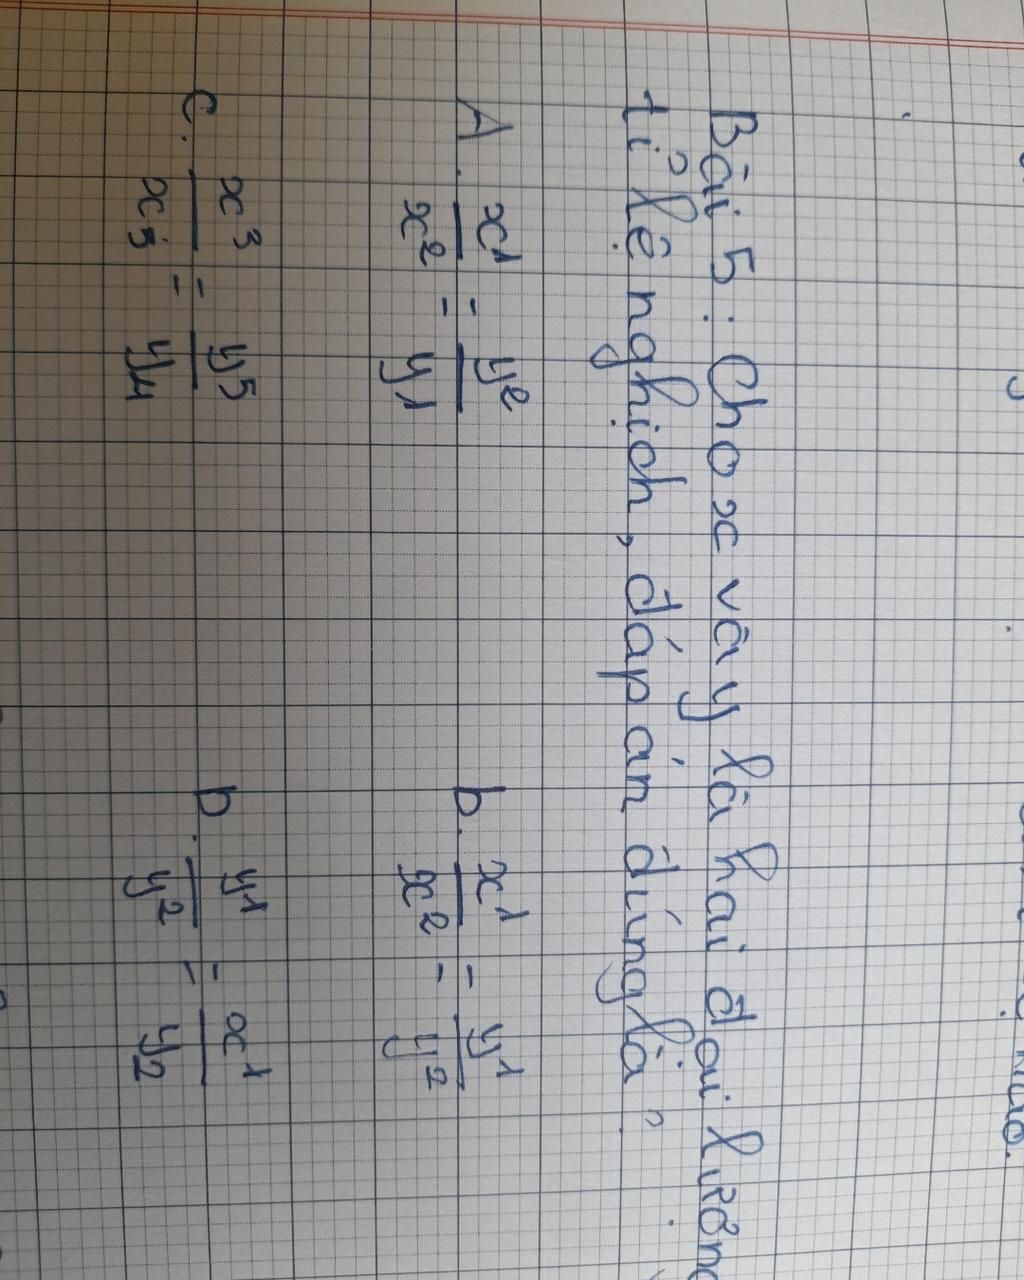 Bài 5: Cho x và y là hai đại lượng
tỉ lệ nghịch, đáp án đúng là ?
A. x1/x2 = y2/y1 b. x1/x2 = y1/y2
c. x3/x5 = y5/y4 D. y1/y2 = x1/y2